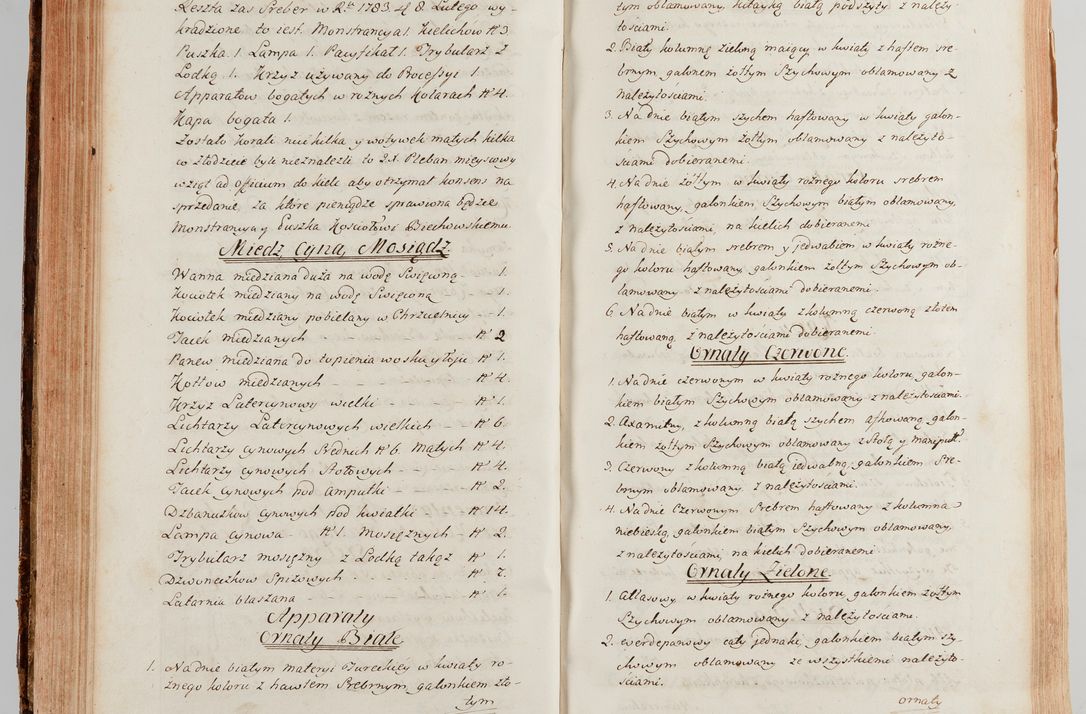 Reszta zas Sreber w R. 1783 d. 8. Lutego wy-
kradzione to iest. Monstrancya 1. Kielichów N 3
Puszka 1. Lampa 1. Pacyfikał 1. Trybularz z
Lodką 1. Krzyz używany do Processyi 1.
Apparatow bogatych w rożnych Kolorach N 4.
Kapa bogata 1.
Zostało Korali nici kilka y wotywek małych kilka
co złodzieie byli nieznaleźli to J.X. Pleban mieyscowy
wziął ad officium do Kielc aby otrzymał konsens na
sprzedanie, za które pieniądze sprawiona będzie
Monstrancya y Puszka Kościołowi Biechowskiemu
Miedz, Cyna, Mosiądz
Wanna miedziana duża na wodę Swięconą - 1.
Kociołek miedziany na wodę Swięconą - - 1.
Kociołek miedziany pobielany w Chrzcielnicy - 1.
Tacek miedzianych - - - N 2
Panew miedziana do topienia wosku y łoju N 1.
Kotłow miedzianych - - - - N 4.
Krzyz Latercynowy wielki - - - N 1.
Lichtarzy Latercynowych wielkich - N 6.
Lichtarzy cynowych Srednich N 6. Małych N 4.
Lichtarzy cynowych Stołowych - - - N 4.
Tacek cynowych pod ampułki - - - N 2.
Dzbanuszkow cynowych Pod kwiatki - N 14.
Lampa cynowa - N 1. Mosiężnych - N 2.
Trybularz mosiężny z Lodką takąz N 1.
Dzwoneczkow Spiżowych - - - N 7.
Latarnia blaszana - - - N 1.
Apparaty
Ornaty Białe
1. Na dnie białym materyi Tureckiey w kwiaty ro-
żnego koloru z hawtem Srebrnym, galonkiem żoł-
tym
tym oblamowany, kitayką białą podszyty z należy-
tościami.
2. Biały kolumnę zieloną maiący w kwiaty z haftem sre-
brnym, galonem żołtym Szychowym oblamowany z
należytościami.
3. Na dnie białym szychem haftowany w kwiaty galon-
kiem Szychowym żołtym oblamowany z należyto-
sciami dobieranemi.
4. Na dnie żółtym w kwiaty rożnego koloru srebrem
haftowany, galonkiem Szychowym białym oblamowany,
z należytościami, na kielich dobieranemi
5. Na dnie białym srebrem y jedwabiem w kwiaty rożne-
go koloru haftowany galonkiem żołtym Szychowym ob-
lamowany z należytościami dobieranemi.
6 Na dnie białym w kwiaty z kolumną czerwoną złotem
haftowaną z należytościami dobieranemi.
Ornaty Czerwone.
1. Na dnie czerwonym w kwiaty rożnego koloru, galon-
kiem białym Szychowym oblamowany z należytościami.
2. Axamitny, z kolumną białą szychem afhowaną galon-
kiem żołtym Szychowym oblamowany z Stołą y manipuł.
3. Czerwony z kolumną białą jedwabną, galonkiem Sre-
brnym oblamowany z należytościami.
4. Na dnie Czerwonym Srebrem haftowany z kolumna
niebieską, galonkiem białym Szychowym oblamowany,
z należytościami, na kielich dobieranemi
Ornaty Zielone.
1. Atłasowy w kwiaty rożnego koloru galonkiem żołtym
Szychowym oblamowany z należytościami.
2. Gwerdepanowy cały jednaki, galonkiem białym szy-
chowym oblamowany ze wszystkiemi należyto-
sciami.
ornaty